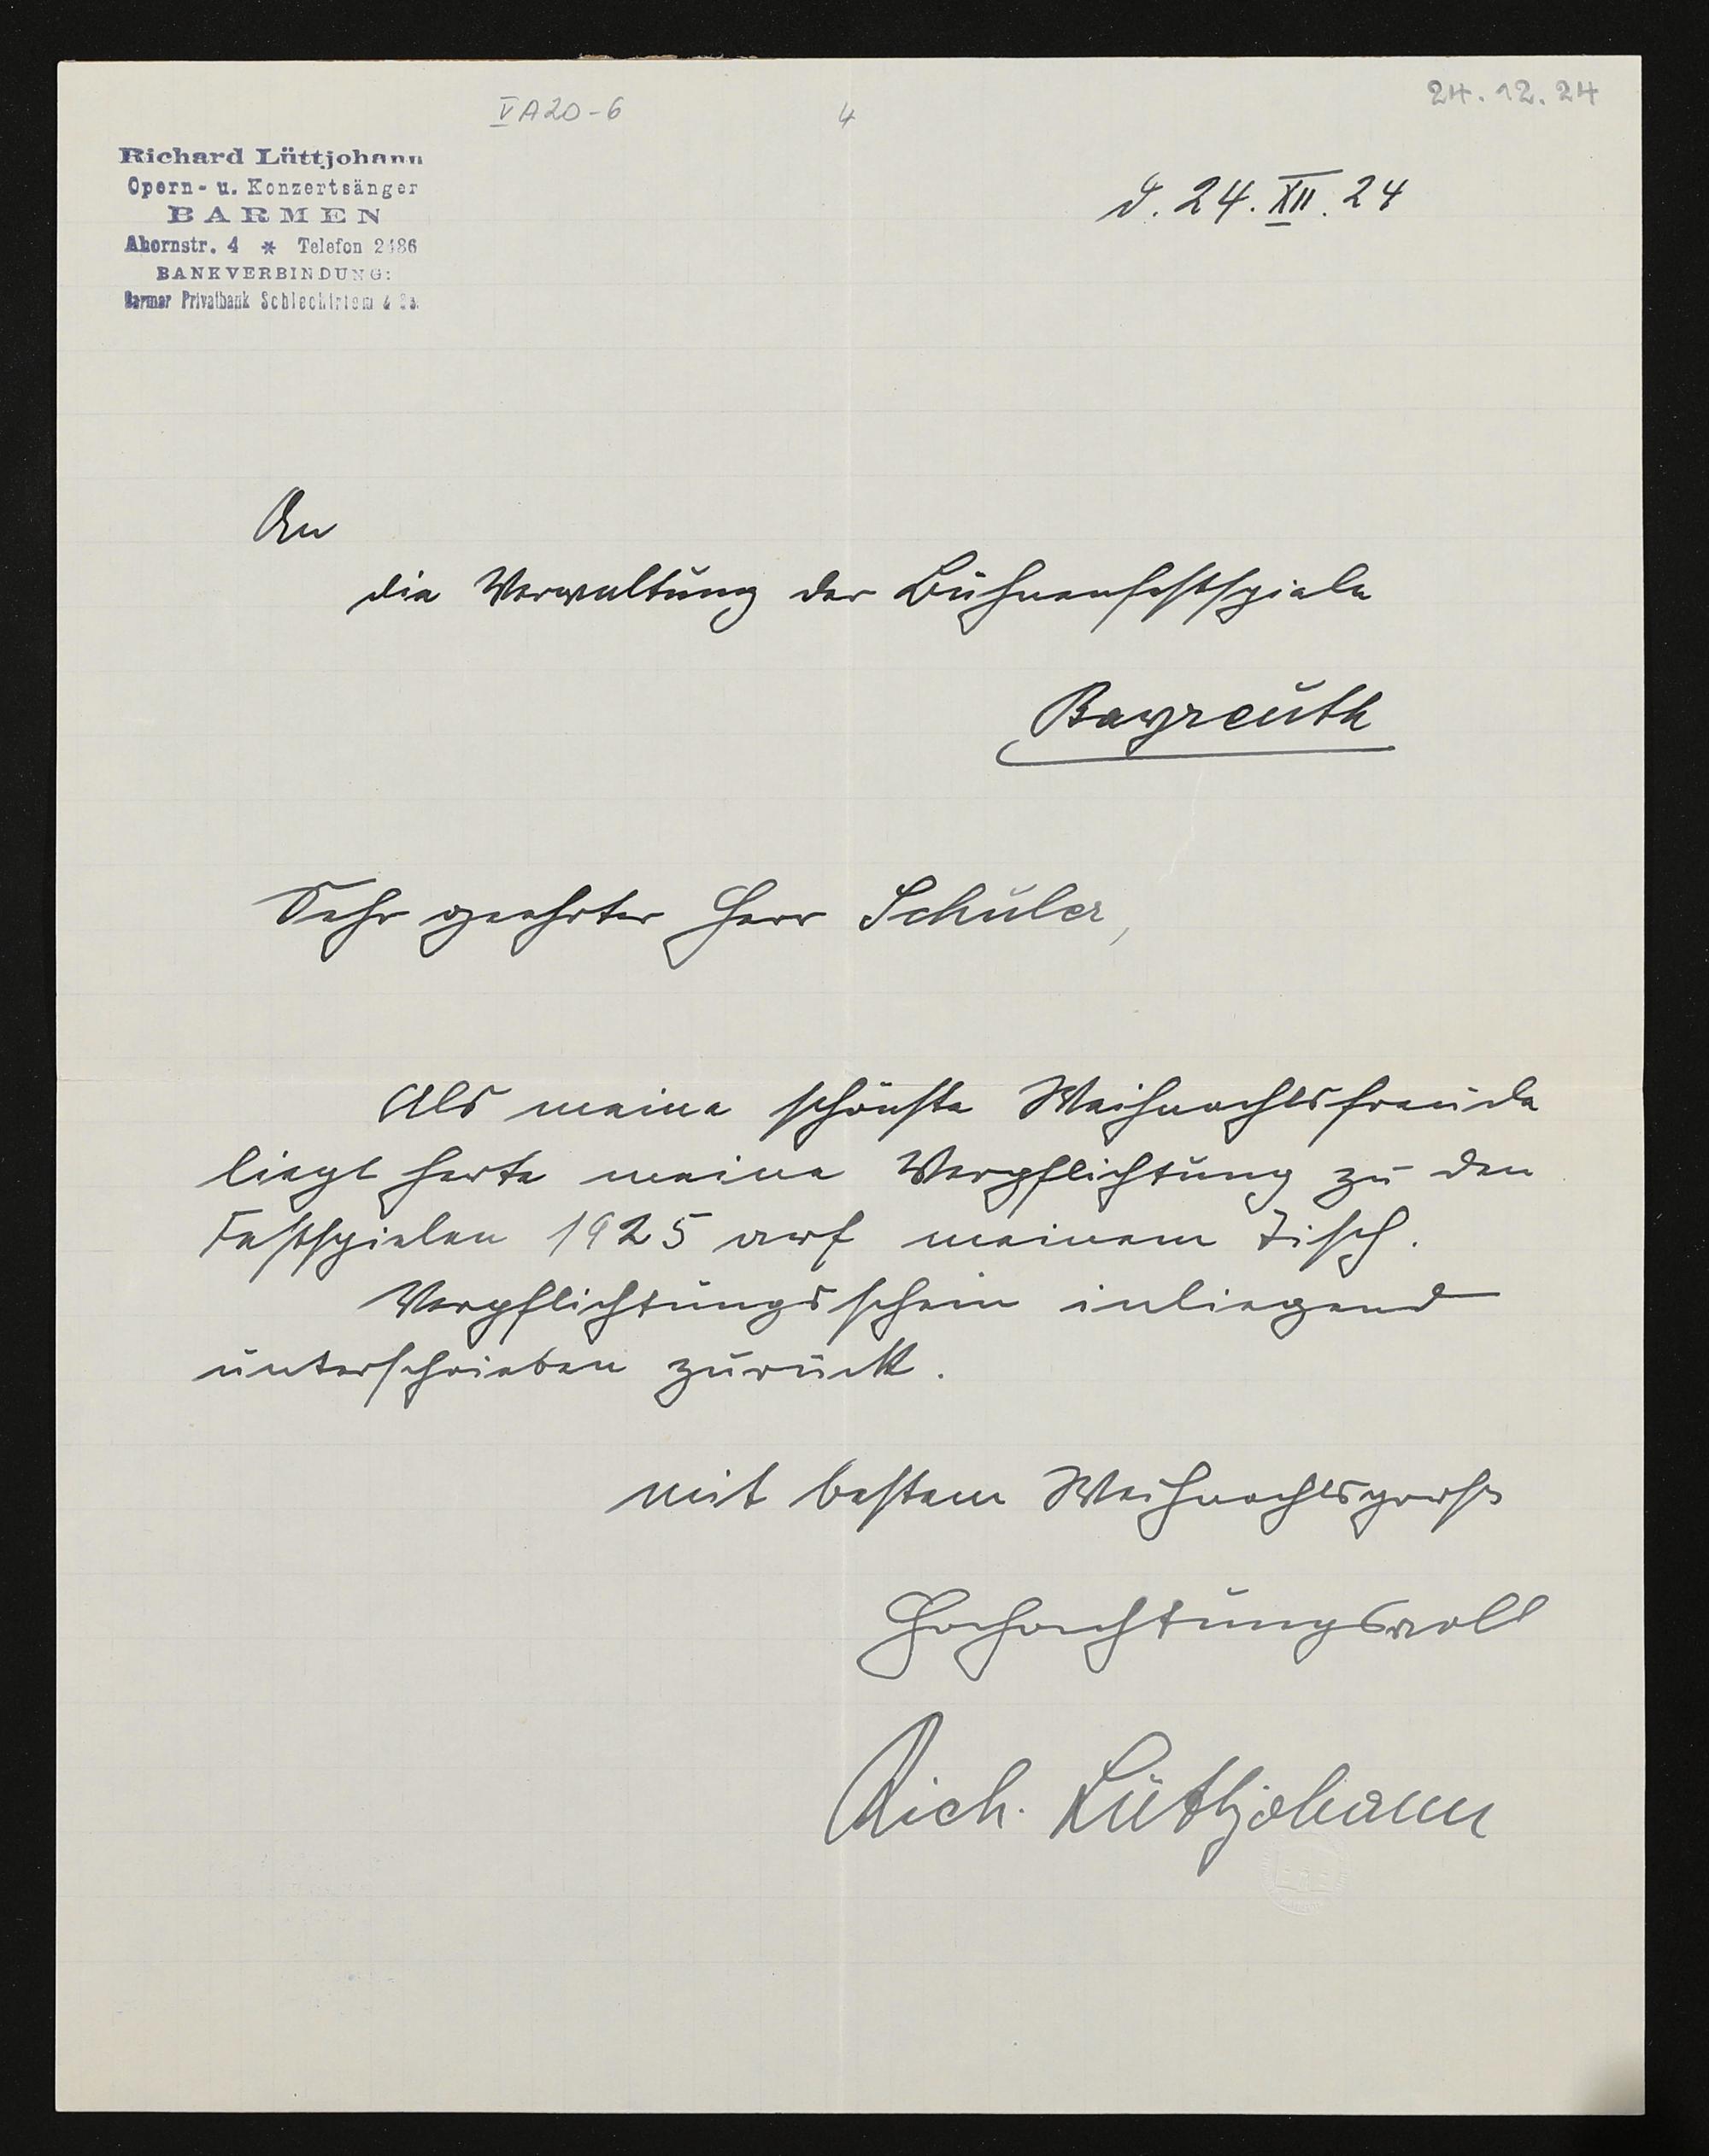 V A 20-6
4
24.12.24
Richard Lüttjohann
Opern- u. Konzertsänger
BARMEN
Ahornstr. 4 * Telefon 2486
BANKVERBINDUNG:
Barmer Privatbank Schlechtriem & Co.
d. 24. XII. 24
An
die Verwaltung der Bühnenfestspiele
Bayreuth
Sehr geehrter Herr Schuler,
Als meine schönste Weihnachtsfreude
liegt heute meine Verpflichtung zu den
Festspielen 1925 auf meinem Tisch.
Verpflichtungsschein inliegend
unterschrieben zurück.
mit bestem Weihnachtsgruß
Hochachtungsvoll
Rich. Lüttjohann